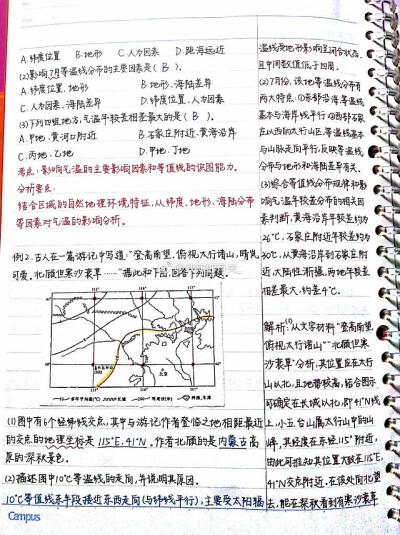 A.纬度位置 B.地形 C.人为因素 D.距海远近
(2)影响7月等温线分布的主要因素是( B )。
A.纬度位置、地形 B.地形、海陆差异
C.人为因素、海陆差异 D.纬度位置、人为因素
(3)下列四组地方,气温年较差相差最大的是( B )。
A.甲地、黄河口附近 B.石家庄附近、黄海沿岸
C.丙地、乙地 D.甲地、丁地
考点:影响气温的主要影响因素和等值线的识图能力。
分析要点:
结合区域的自然地理环境特征,从纬度、地形、海陆分布
等因素对气温的影响分析。
例2.古人在一篇游记中写道:"登高南望,俯视太行诸山,晴岚
可爱。北顾但寒沙衰草……"据此和下图,回答下列问题。
(1)图中有6个经纬线交点,其中与游记作者登临之地相距最近
的交点的地理坐标是 115°E,41°N 。作者北顾的是内蒙古高
原的深秋景色。
(2)描述图中10℃等温线的走向,并说明其原因。
10℃等值线东段接近东西走向(与纬线平行),主要受太阳辐
Campus
温线受地形影响呈闭合状态,
且中间数值低于四周。
(2)7月份,该地等温线分布有
两大特点:①东部沿海,等温线
基本与海岸线平行②西部石家
庄以西的太行山区,等温线基本
与山脉走向平行,反映等温线
分布与地形和海陆差异有关。
(3)综合等值线分布规律和影
响气温年较差分布的相关因
素判断,黄海沿岸年较差约为
26℃,石家庄附近年较差约为
30℃,从黄海沿岸到石家庄附
近,大陆性渐强,两地年较差
相差最大,约差4℃。
解析:(1)
从文字材料"登高南望,
俯视太行诸山""北顾但寒
沙衰草"分析,其位置应在太行
山以北,且地势较高,结合图示
可确定在长城以北,即41°N线
上,小五台山属太行山中的山
峰,其经度在东经115°附近,
由此可推知其位置大致在115°E,
41°N交点附近。在该处向北望
去,能在深秋看到有寒沙衰草